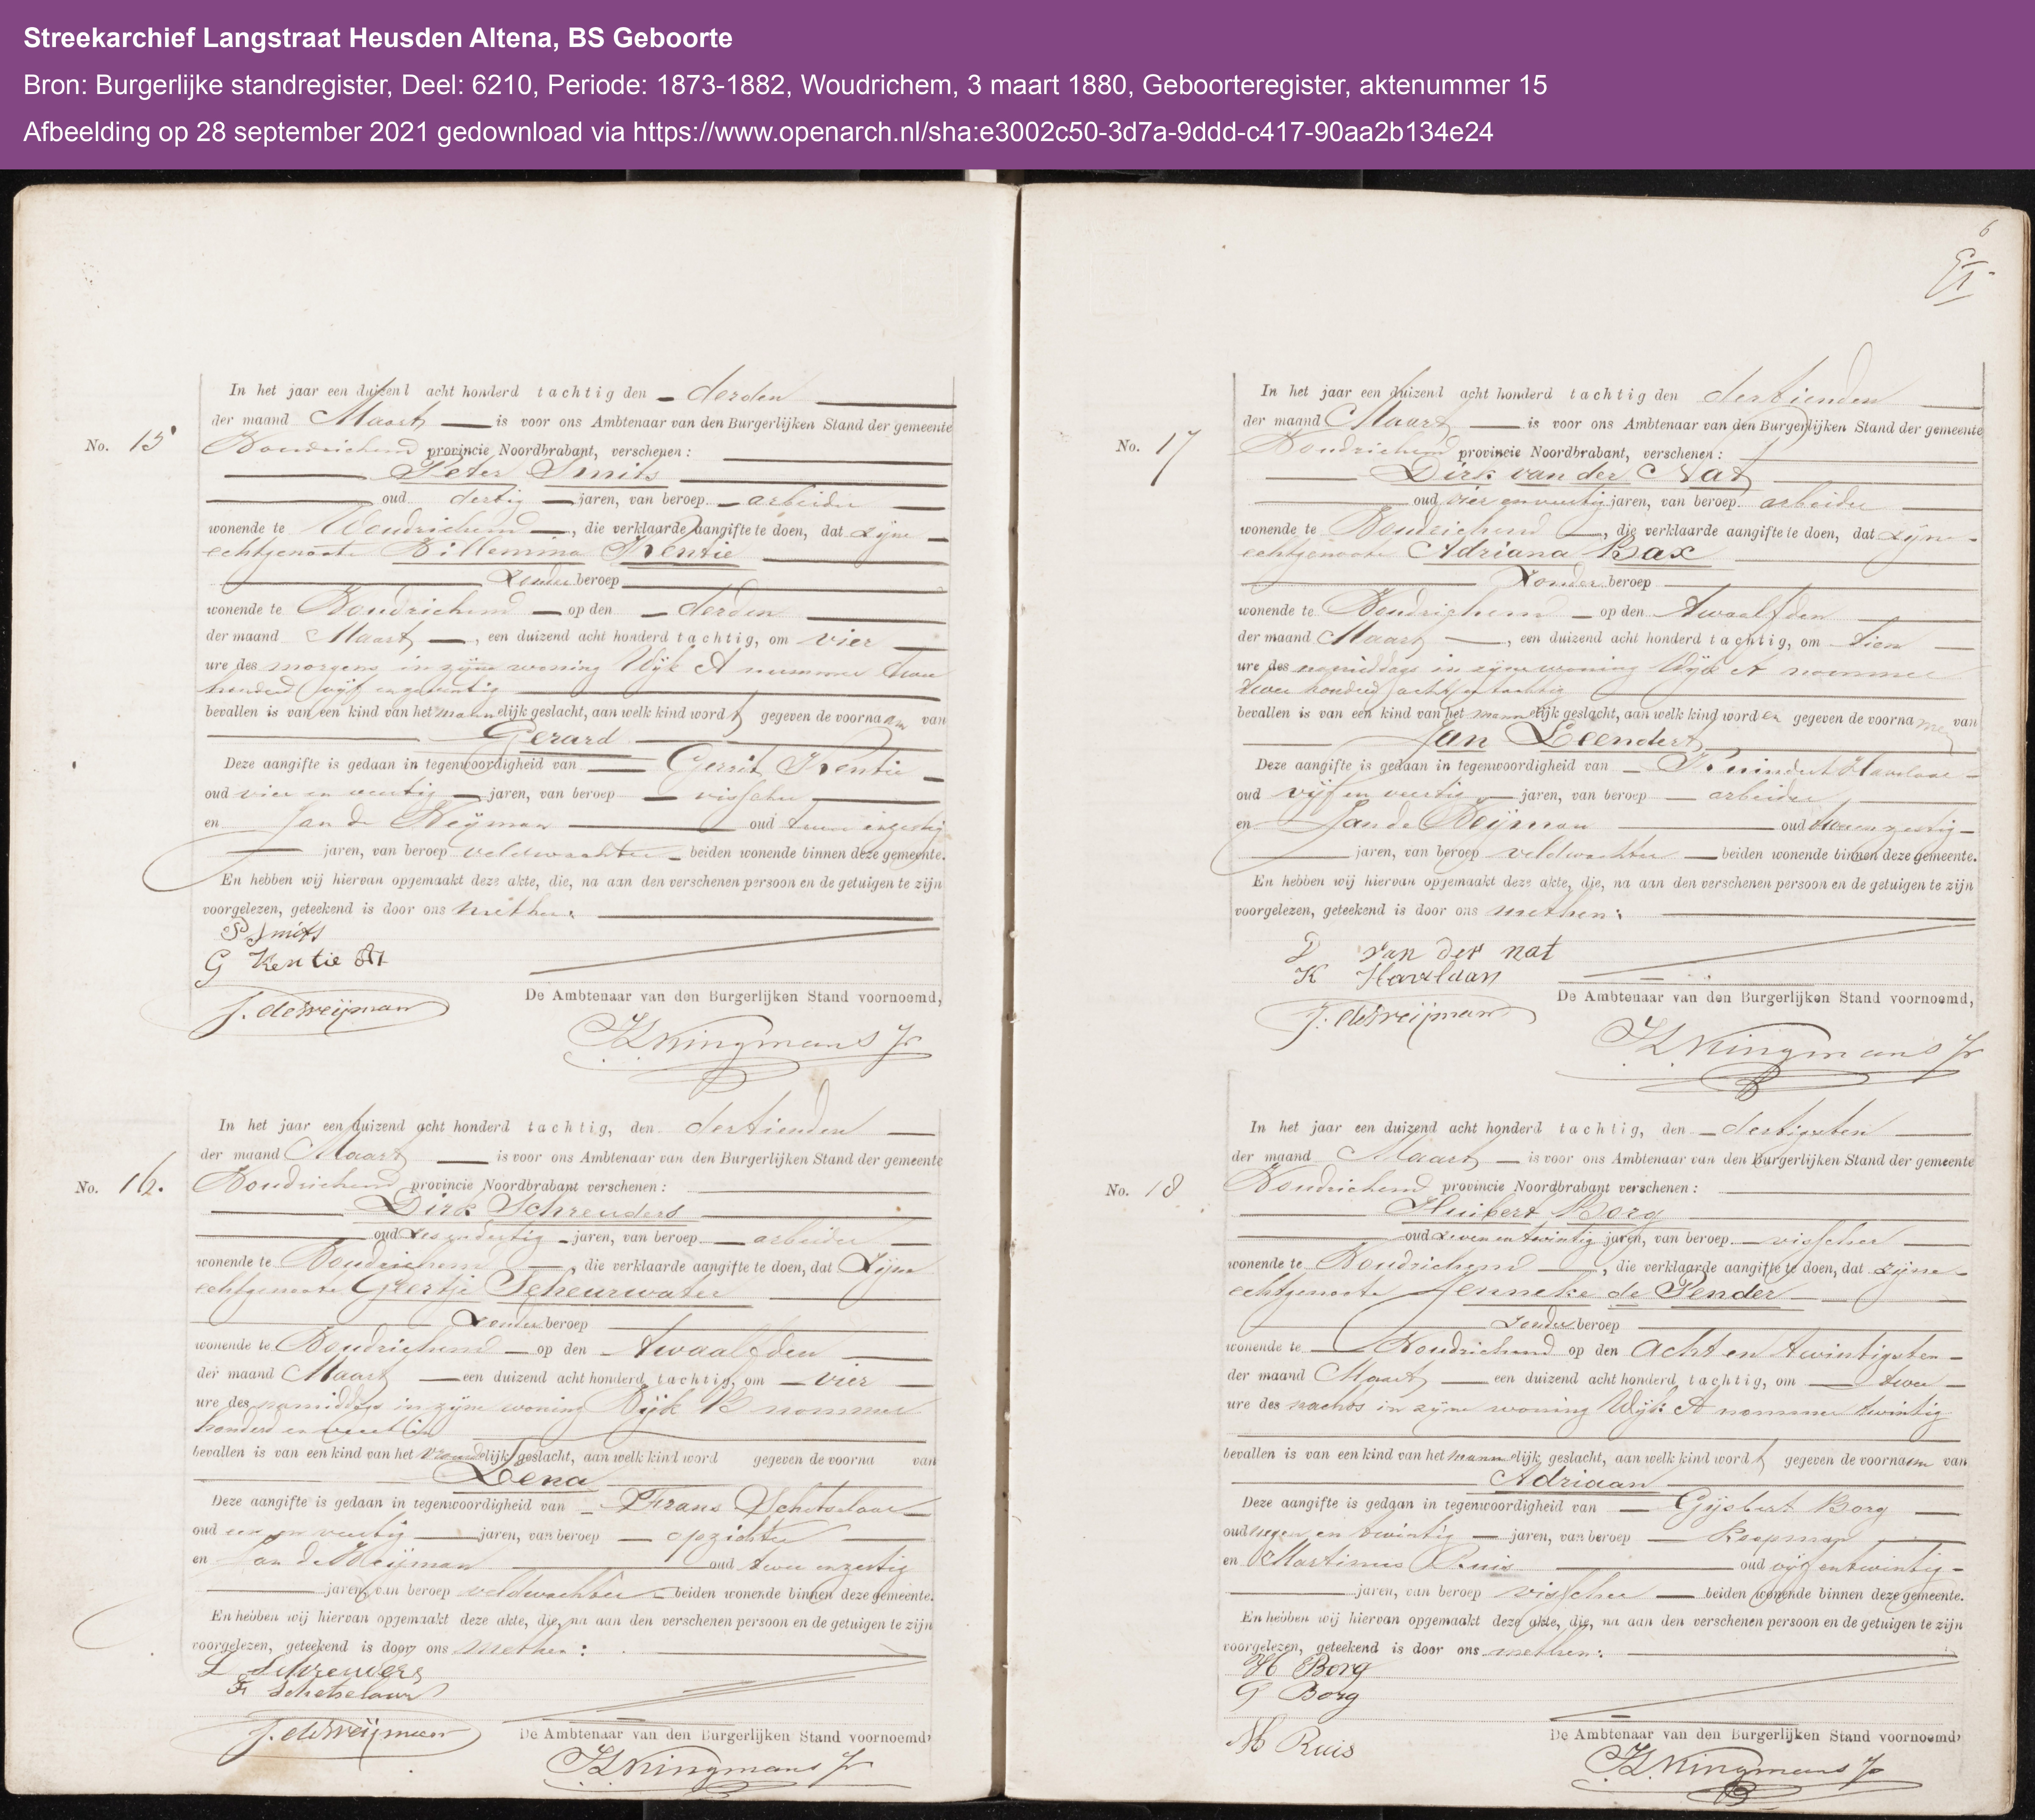 Streekarchief Langstraat Heusden Altena, BS Geboorte
Bron: Burgerlijke standregister, Deel: 6210, Periode: 1873-1882, Woudrichem, 3 maart 1880, Geboorteregister, aktenummer 15
Afbeelding op 28 september 2021 gedownload via https://www.openarch.nl/sha:e3002c50-3d7a-9ddd-c417-90aa2b134e24
No. 15
In het jaar een duizend acht honderd tachtig den derden
der maand Maart is voor ons Ambtenaar van den Burgerlijken Stand der gemeente
Woudrichem provincie Noordbrabant, verschenen:
Peter Smits
oud dertig jaren, van beroep arbeider
wonende te Woudrichem, die verklaarde aangifte te doen, dat zijne
echtgenoote Willemina Kentie
zonder beroep
wonende te Woudrichem op den derden
der maand Maart, een duizend acht honderd tachtig, om vier
ure des morgens in zijne woning Wijk A nummer twee
honderd vijf en
bevallen is van een kind van het mannelijk geslacht, aan welk kind wordt gegeven de voornaam van
Gerard
Deze aangifte is gedaan in tegenwoordigheid van Gerrit Kentie
oud vier en veertig jaren, van beroep visscher
en Jan de Weijman oud twee en zestig
jaren, van beroep veldwachter beiden wonende binnen deze gemeente.
En hebben wij hiervan opgemaakt deze akte, die, na aan den verschenen persoon en de getuigen te zijn
voorgelezen, geteekend is door ons met hen:
P Smits
G Kentie
J. de Weijman
De Ambtenaar van den Burgerlijken Stand voornoemd,
Kingmans Jr
No. 16.
In het jaar een duizend acht honderd tachtig, den dertienden
der maand Maart is voor ons Ambtenaar van den Burgerlijken Stand der gemeente
Woudrichem provincie Noordbrabant verschenen:
Dirk Schreuders
oud zes en dertig jaren, van beroep arbeider
wonende te Woudrichem, die verklaarde aangifte te doen, dat zijne
echtgenoote Geertje Scheurwater
zonder beroep
wonende te Woudrichem op den twaalfden
der maand Maart een duizend acht honderd tachtig, om vier
ure des namiddags in zijne woning Wijk B nommer
honderd en
bevallen is van een kind van het vrouwelijk geslacht, aan welk kind word gegeven de voorna van
Lena
Deze aangifte is gedaan in tegenwoordigheid van Frans Schotselaar
oud een en veertig jaren, van beroep opzichter
en Jan de Weijman oud twee en zestig
jaren, van beroep veldwachter beiden wonende binnen deze gemeente.
En hebben wij hiervan opgemaakt deze akte, die, na aan den verschenen persoon en de getuigen te zijn
voorgelezen, geteekend is door ons met hen:
Schreuders
F Schotselaar
J. de Weijman
De Ambtenaar van den Burgerlijken Stand voornoemd,
Kingmans Jr
6
No. 17
In het jaar een duizend acht honderd tachtig den dertienden
der maand Maart is voor ons Ambtenaar van den Burgerlijken Stand der gemeente
Woudrichem provincie Noordbrabant, verschenen:
Dirk van der Nat
oud vier en veertig jaren, van beroep arbeider
wonende te Woudrichem, die verklaarde aangifte te doen, dat zijne
echtgenoote Adriana Bax
zonder beroep
wonende te Woudrichem op den twaalfden
der maand Maart, een duizend acht honderd tachtig, om tien
ure des namiddags in zijne woning Wijk A nommer
twee honderd acht en tachtig
bevallen is van een kind van het mannelijk geslacht, aan welk kind worden gegeven de voornamen van
Jan Leendert
Deze aangifte is gedaan in tegenwoordigheid van
oud vijf en veertig jaren, van beroep arbeider
en Jan de Weijman oud twee en zestig
jaren, van beroep veldwachter beiden wonende binnen deze gemeente.
En hebben wij hiervan opgemaakt deze akte, die, na aan den verschenen persoon en de getuigen te zijn
voorgelezen, geteekend is door ons met hen:
D van der nat
K
J. de Weijman
De Ambtenaar van den Burgerlijken Stand voornoemd,
Kingmans Jr
No. 18
In het jaar een duizend acht honderd tachtig, den dertigsten
der maand Maart is voor ons Ambtenaar van den Burgerlijken Stand der gemeente
Woudrichem provincie Noordbrabant verschenen:
Huibert Borg
oud zeven en twintig jaren, van beroep visscher
wonende te Woudrichem, die verklaarde aangifte te doen, dat zijne
echtgenoote Jenneke de Pender
zonder beroep
wonende te Woudrichem op den acht en twintigsten
der maand Maart een duizend acht honderd tachtig, om twee
ure des nachts in zijne woning Wijk A nommer twintig
bevallen is van een kind van het mannelijk geslacht, aan welk kind wordt gegeven de voornaam van
Adriaan
Deze aangifte is gedaan in tegenwoordigheid van Gijsbert Borg
oud negen en twintig jaren, van beroep koopman
en Martinus Ruis oud vijf en twintig
jaren, van beroep visscher beiden wonende binnen deze gemeente.
En hebben wij hiervan opgemaakt deze akte, die, na aan den verschenen persoon en de getuigen te zijn
voorgelezen, geteekend is door ons met hen:
H Borg
G Borg
M Ruis
De Ambtenaar van den Burgerlijken Stand voornoemd,
Kingmans Jr